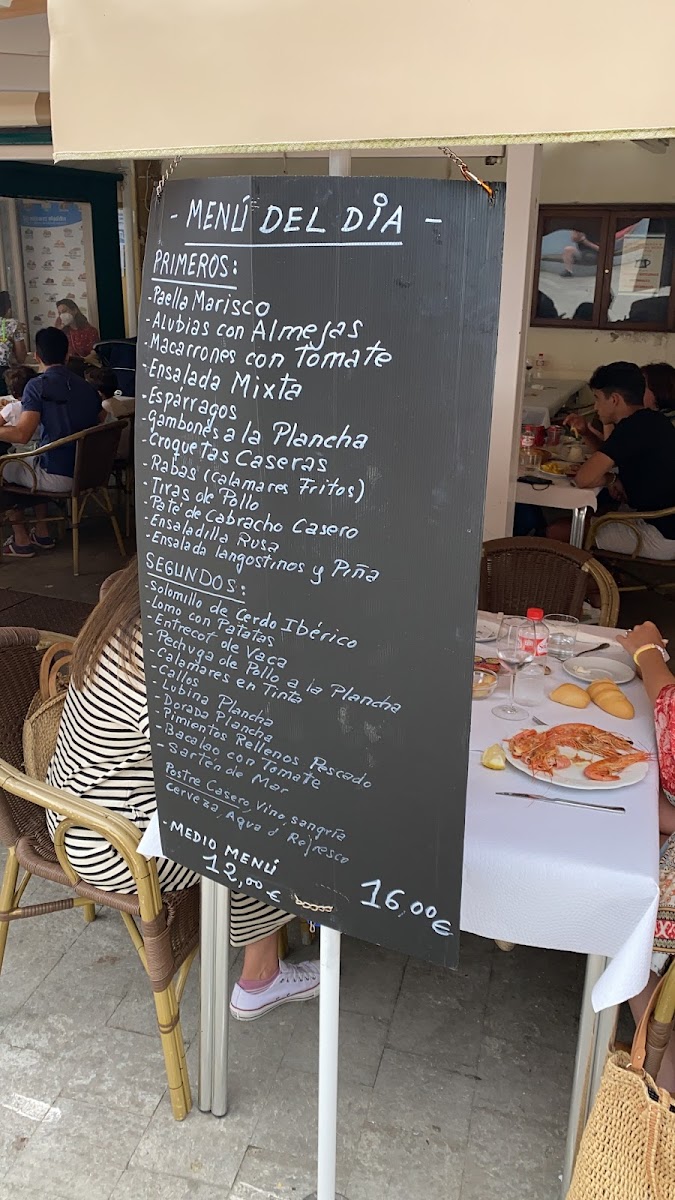 - MENÚ DEL DIA -
PRIMEROS:
- Paella Marisco
- Alubias con Almejas
- Macarrones con Tomate
- Ensalada Mixta
- Espárragos
- Gambones a la Plancha
- Croquetas Caseras
- Rabas (calamares Fritos)
- Tiras de Pollo
- Paté de Cabracho Casero
- Ensaladilla Rusa
- Ensalada langostinos y Piña
SEGUNDOS:
- Solomillo de Cerdo Ibérico
- Lomo con Patatas
- Entrecot de Vaca
- Pechuga de Pollo a la Plancha
- Calamares en Tinta
- Callos
- Lubina Plancha
- Dorada Plancha
- Pimientos Rellenos Pescado
- Bacalao con Tomate
- Sartén de Mar
Postre Casero, Vino, sangría
Cerveza, Agua d Refresco
- MEDIO MENÚ
12,00 €
16,00 €